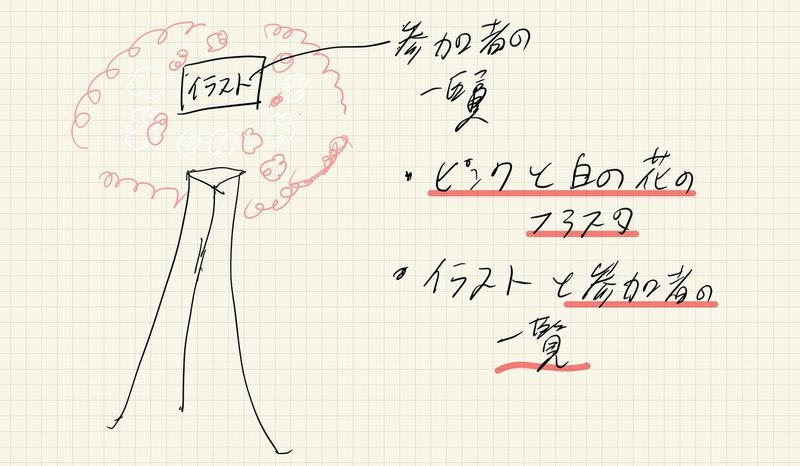 イラスト
参加者の
一覧
・ピンクと白の花の
フラスタ
・イラストと参加者の
一覧